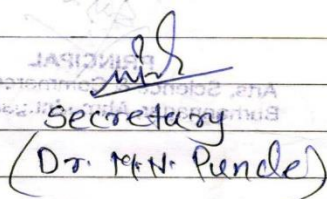 PRINCIPAL
Arts, Science & Commerce
Secretary
(Dr. M.N. Punde)